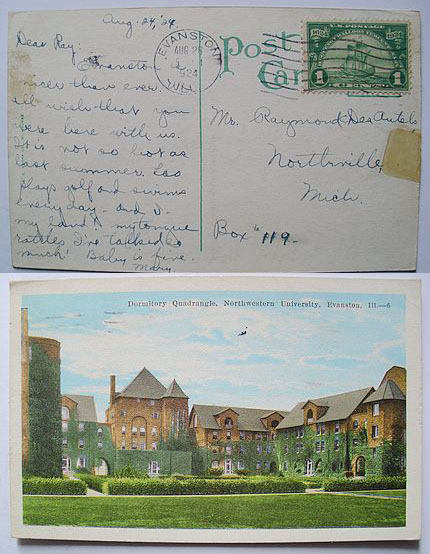 Aug. 24, '24.
Dear Ray:
Evanston is
nicer than ever.
all wish that you
were here with us.
It is not so hot as
last summer. Leo
plays golf and swims
everyday - and I -
my land! my tongue
rattles I've talked so
much! Baby is fine.
Mary.
EVANSTON
AUG 25
1924
ILL.
Post
Card
U.S. POSTAGE
HUGUENOT WALLOON TERCENTENARY
1624 1924
1 1
Mr. Raymond Des Autels,
Northville,
Mich.
Box # 119-
Dormitory Quadrangle, Northwestern University, Evanston, Ill.—6